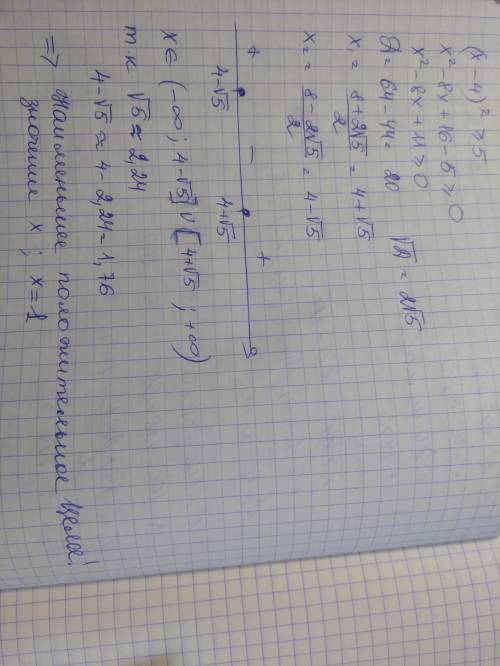 (x-4)² ⩾ 5
x²-8x+16-5 ⩾ 0
x²-8x+11 ⩾ 0
D = 64-44 = 20 √D = 2√5
x₁ = (8+2√5)/2 = 4+√5
x₂ = (8-2√5)/2 = 4-√5
+ - +
4-√5 4+√5
x ∈ (-∞; 4-√5] ∪ [4+√5; +∞)
т.к √5 ≈ 2,24
4-√5 ≈ 4-2,24 = 1,76
=> Наименьшее положительное целое
значение x; x=1